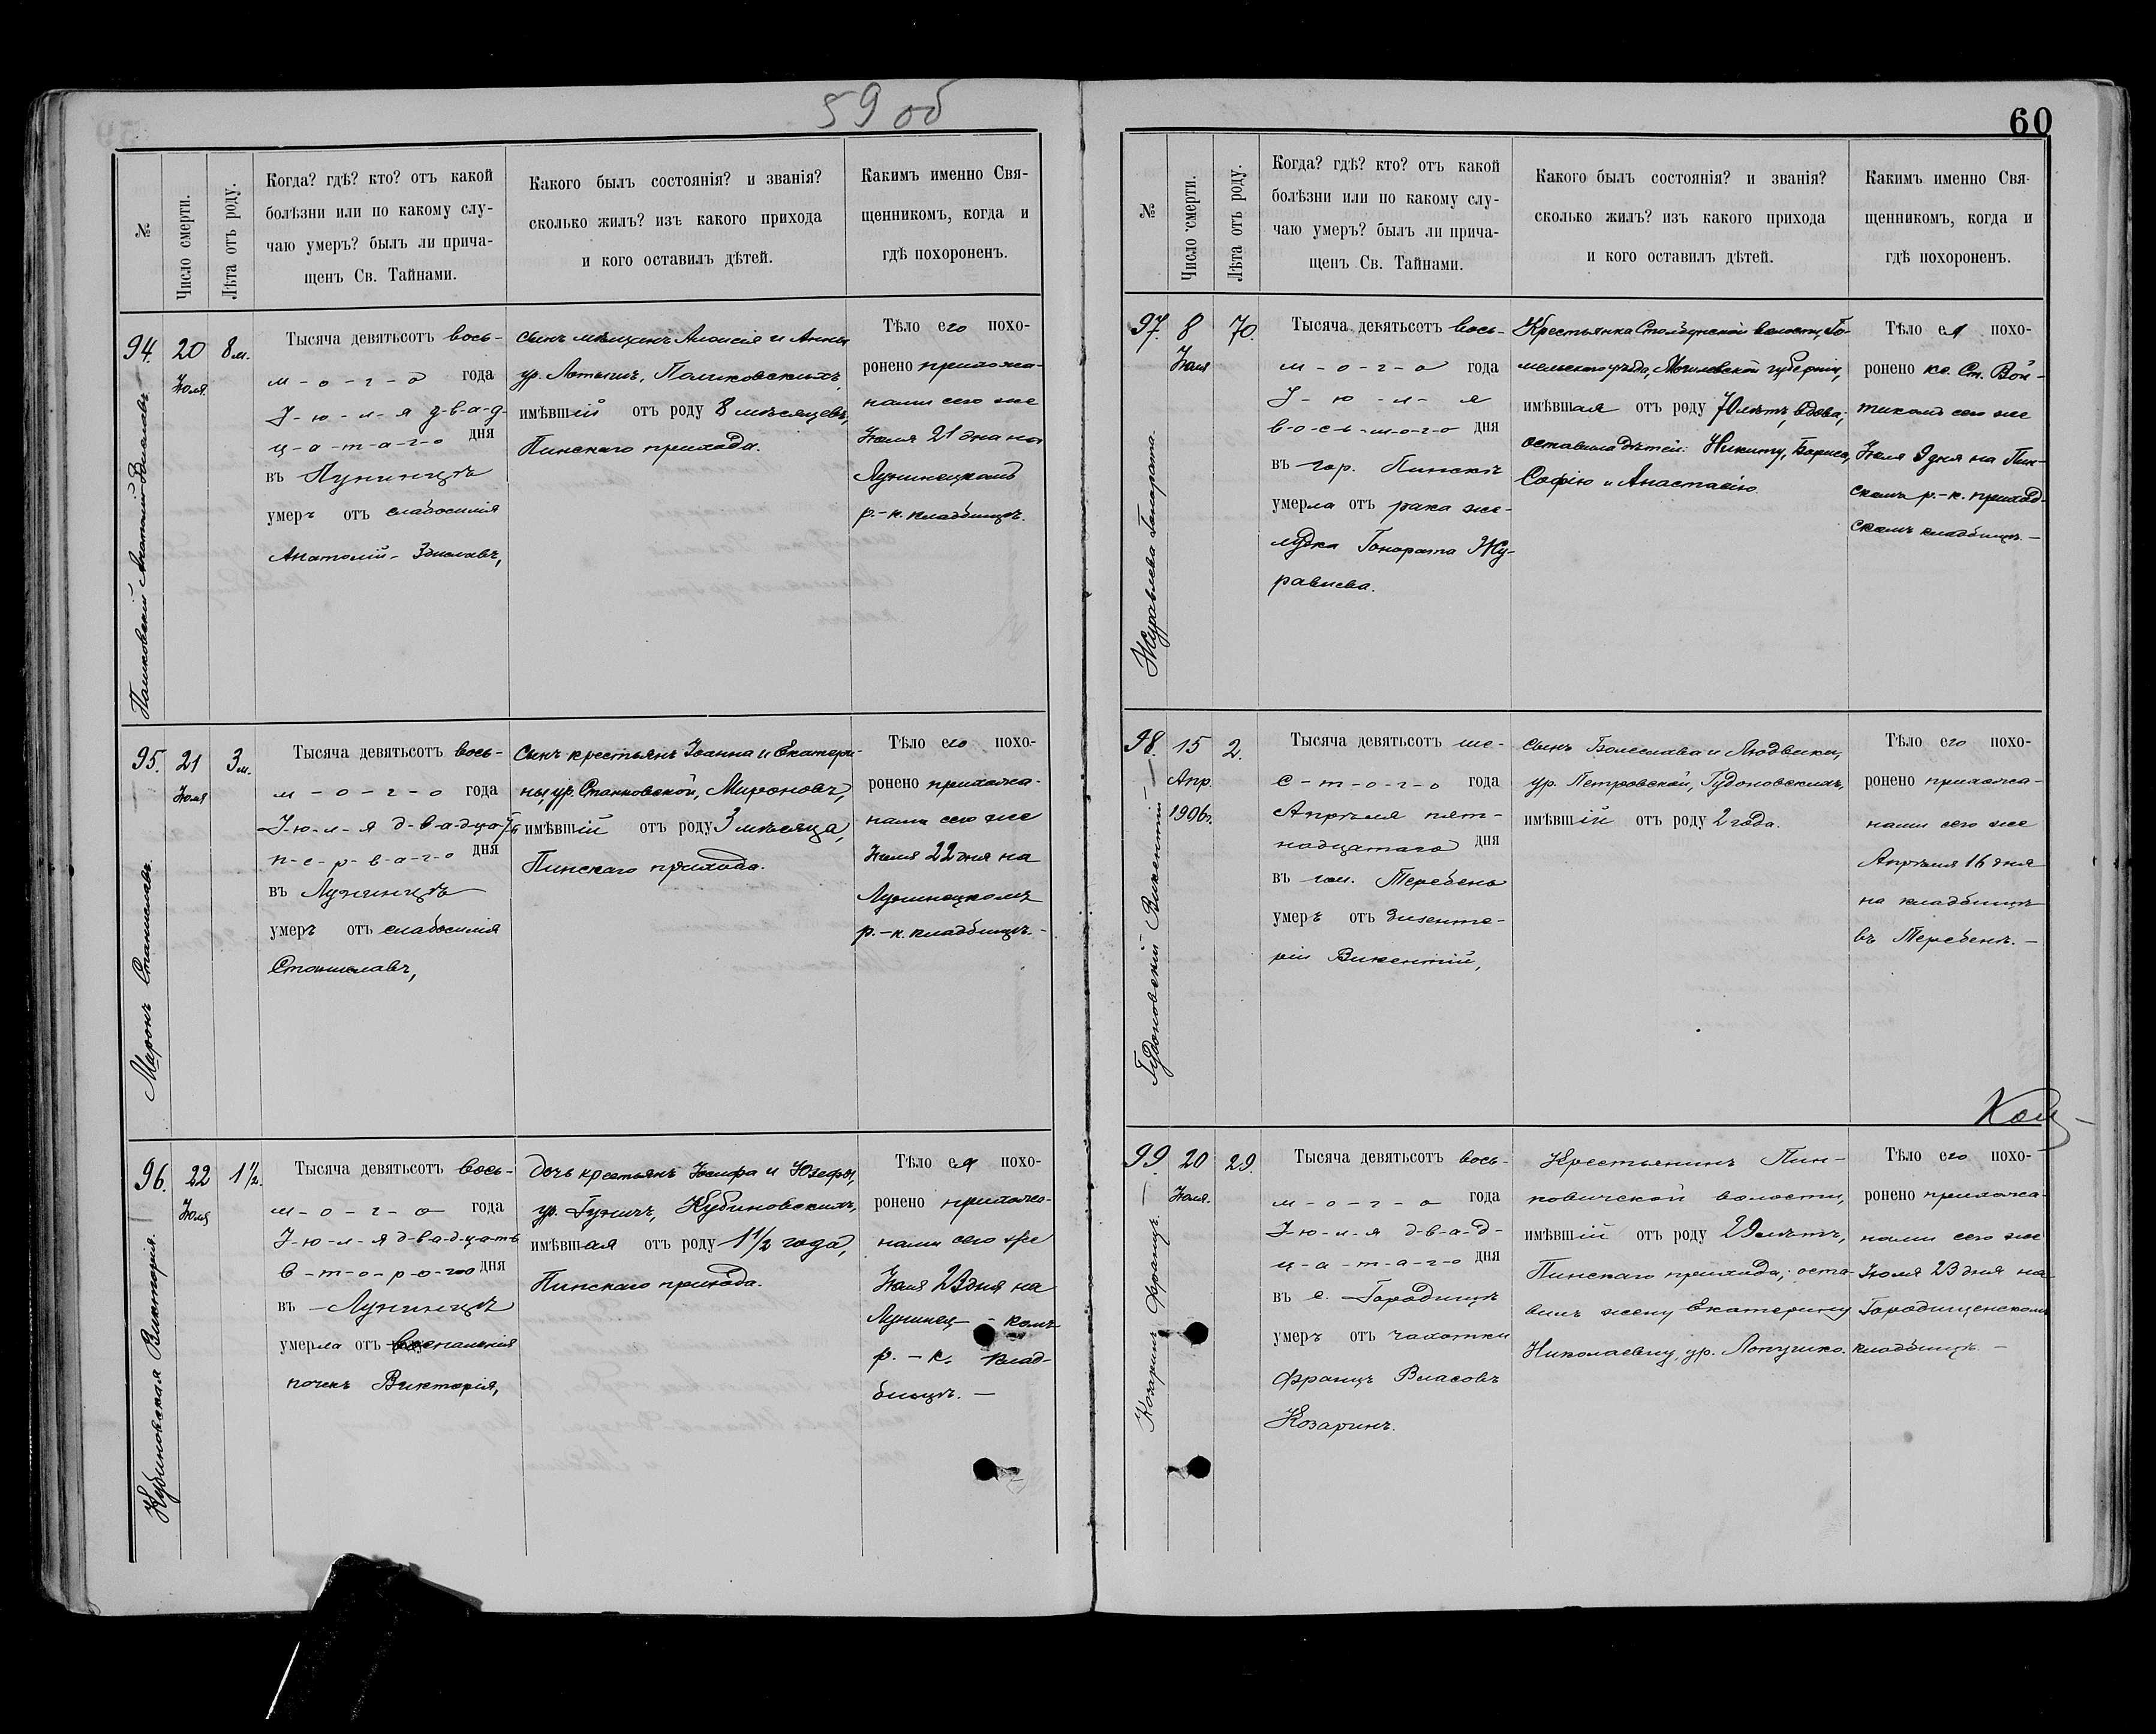 59 об
№
Число смерти.
Лѣта отъ роду.
Когда? гдѣ? кто? отъ какой
болѣзни или по какому слу-
чаю умеръ? былъ ли прича-
щенъ Св. Тайнами.
Какого былъ состоянія? и званія?
сколько жилъ? изъ какого прихода
и кого оставилъ дѣтей.
Какимъ именно Свя-
щенникомъ, когда и
гдѣ похороненъ.
94.
20
Іюля.
8 м.
Тысяча девятьсотъ вось-
м-о-г-о года
І-ю-л-я д-в-а-д-
ц-а-т-а-г-о дня
въ Лунинцѣ
умеръ отъ слабосилія
Анатолій-Здиславъ,
сынъ мѣщанъ Алоисія и Анны
ур. Лотышъ, Поликовскихъ,
имѣвшій отъ роду 8 мѣсяцевъ,
Пинскаго прихода.
Тѣло его похо-
ронено прихожа-
нами сего же
Іюля 21 дня на
Лунинецкомъ
р.-к. кладбищѣ.
95.
21
Іюля
3 м.
Миронъ Станиславъ.
Тысяча девятьсотъ вось-
м-о-г-о года
І-ю-л-я д-в-а-д-ца-ть
п-е-р-в-а-г-о дня
въ Лунинцѣ
умеръ отъ слабосилія
Станиславъ,
сынъ крестьянъ Іоанна и Екатери-
ны, ур. Станковской, Мироновъ,
имѣвшій отъ роду 3 мѣсяца,
Пинскаго прихода.
Тѣло его похо-
ронено прихожа-
нами сего же
Іюля 22 дня на
Лунинецкомъ
р.-к. кладбищѣ.-
96.
22
Іюля
1½.
Кубиновская Викторія.
Тысяча девятьсотъ вось-
м-о-г-о года
І-ю-л-я д-в-а-д-ц-а-т-ь
в-т-о-р-о-г-о дня
въ Лунинцѣ
умерла отъ воспаленія
почекъ Викторія,
дочь крестьянъ Іосифа и Юзефы,
ур. Гуничъ, Кубиновскихъ,
имѣвшая отъ роду 1½ года,
Пинскаго прихода.
Тѣло ея похо-
ронено прихожа-
нами сего же
Іюля 23 дня на
Лунинец- -комъ
р.-к. клад-
бищѣ. —
60
№
Число смерти.
Лѣта отъ роду.
Когда? гдѣ? кто? отъ какой
болѣзни или по какому слу-
чаю умеръ? былъ ли прича-
щенъ Св. Тайнами.
Какого былъ состоянія? и званія?
сколько жилъ? изъ какого прихода
и кого оставилъ дѣтей.
Какимъ именно Свя-
щенникомъ, когда и
гдѣ похороненъ.
97.
8
Іюля
70.
Журавлева Гонората.
Тысяча девятьсотъ вось-
м-о-г-о года
І-ю-л-я
в-о-с-ь-м-о-г-о дня
въ гор. Пинскѣ
умерла отъ рака же-
лудка Гонората Жу-
равлева.
Крестьянка волости, Го-
мельскаго уѣзда, Могилевской губерніи,
имѣвшая отъ роду 70 лѣтъ, вдова;
оставила дѣтей: Никиту, Бориса,
Софію и Анастасію.
Тѣло ея похо-
ронено кс. Ст. Вой-
тикомъ сего же
Іюля 9 дня на Пин-
скомъ р.-к. приход-
скомъ кладбищѣ. —
98.
15
Апр.
1906 г.
2.
Гудоновскій Викентій
Тысяча девятьсотъ ше-
с-т-о-г-о года
Апрѣля пят-
надцатаго дня
въ им. Теребень
умеръ отъ дизенте-
ріи Викентій,
сынъ Болеслава и Людвики,
ур. Петровской, Гудоновскихъ,
имѣвшій отъ роду 2 года.
Тѣло его похо-
ронено прихожа-
нами сего же
Апрѣля 16 дня
на кладбищѣ
въ Теребенѣ. —
99.
20
Іюля.
29.
Козаринъ Францъ.
Тысяча девятьсотъ вось-
м-о-г-о года
І-ю-л-я д-в-а-д-
ц-а-т-а-г-о дня
въ с. Городищѣ
умеръ отъ чахотки
Францъ Власовъ
Козаринъ.
Крестьянинъ Пин-
ковичской волости,
имѣвшій отъ роду 29 лѣтъ,
Пинскаго прихода; оста-
вилъ жену Екатерину
Николаевну, ур. Лопушко.
Тѣло его похо-
ронено прихожа-
нами сего же
Іюля 23 дня на
Городищенскомъ
кладбищѣ. —